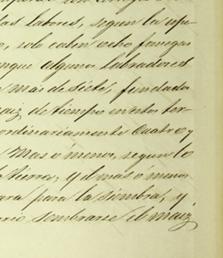 das labores, segun la epo
, solo caben ocho fanegas
nque algunos labradores
mas de siete, fundado
aiz, de tiempo
ordinariamente cuatro, y
mas o menos, segun lo
tierra, y el mas o menos
ara para la siembra, y
sembrarse el maiz